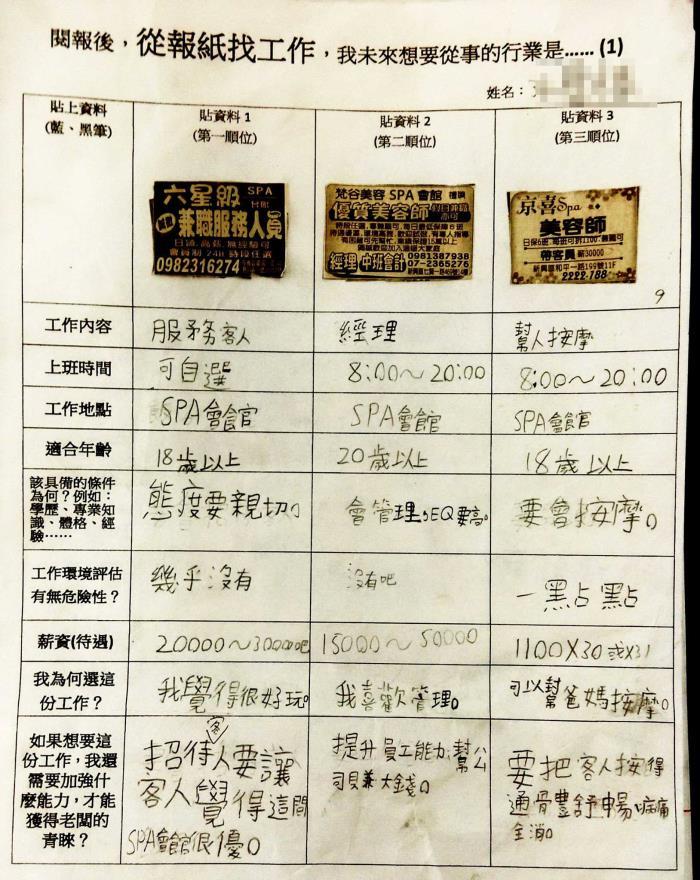 閱報後，從報紙找工作，我未來想要從事的行業是…… (1)
姓名：
貼上資料
(藍、黑筆)
貼資料 1
(第一順位)
貼資料 2
(第二順位)
貼資料 3
(第三順位)
六星級 SPA
會館
兼職服務人員
日領、高薪、無經驗可
會員制 24H 時段任選
0982316274
梵谷美容 SPA 會館
優質美容師
經理 中班會計
0981387938
07-2365276
京喜Spa
美容師
日保6班，每班可到1100，兼職可
帶客員 薪30000
新興區和平一路199號11F
2222-188
9
工作內容
服務客人
經理
幫人按摩
上班時間
可自選
8:00～20:00
8:00～20:00
工作地點
SPA會館官
SPA會館
SPA會館官
適合年齡
18歲以上
20歲以上
18歲以上
該具備的條件
為何？例如：
學歷、專業知
識、體格、經
驗……
態度要親切。
會管理，EQ要高。
要會按摩。
工作環境評估
有無危險性？
幾乎沒有
沒有吧
一點點
薪資(待遇)
20000～30000吧
15000～50000
1100X30或X31
我為何選這
份工作？
我覺得很好玩。
我喜歡管理。
可以幫爸媽按摩。
如果想要這
份工作，我還
需要加強什
麼能力，才能
獲得老闆的
青睞？
招待客人要讓
客人覺得這間
SPA會館很優。
提升員工能力，幫公
司賺大錢。
要把客人按得
通骨豐舒暢，痠痛
全消。